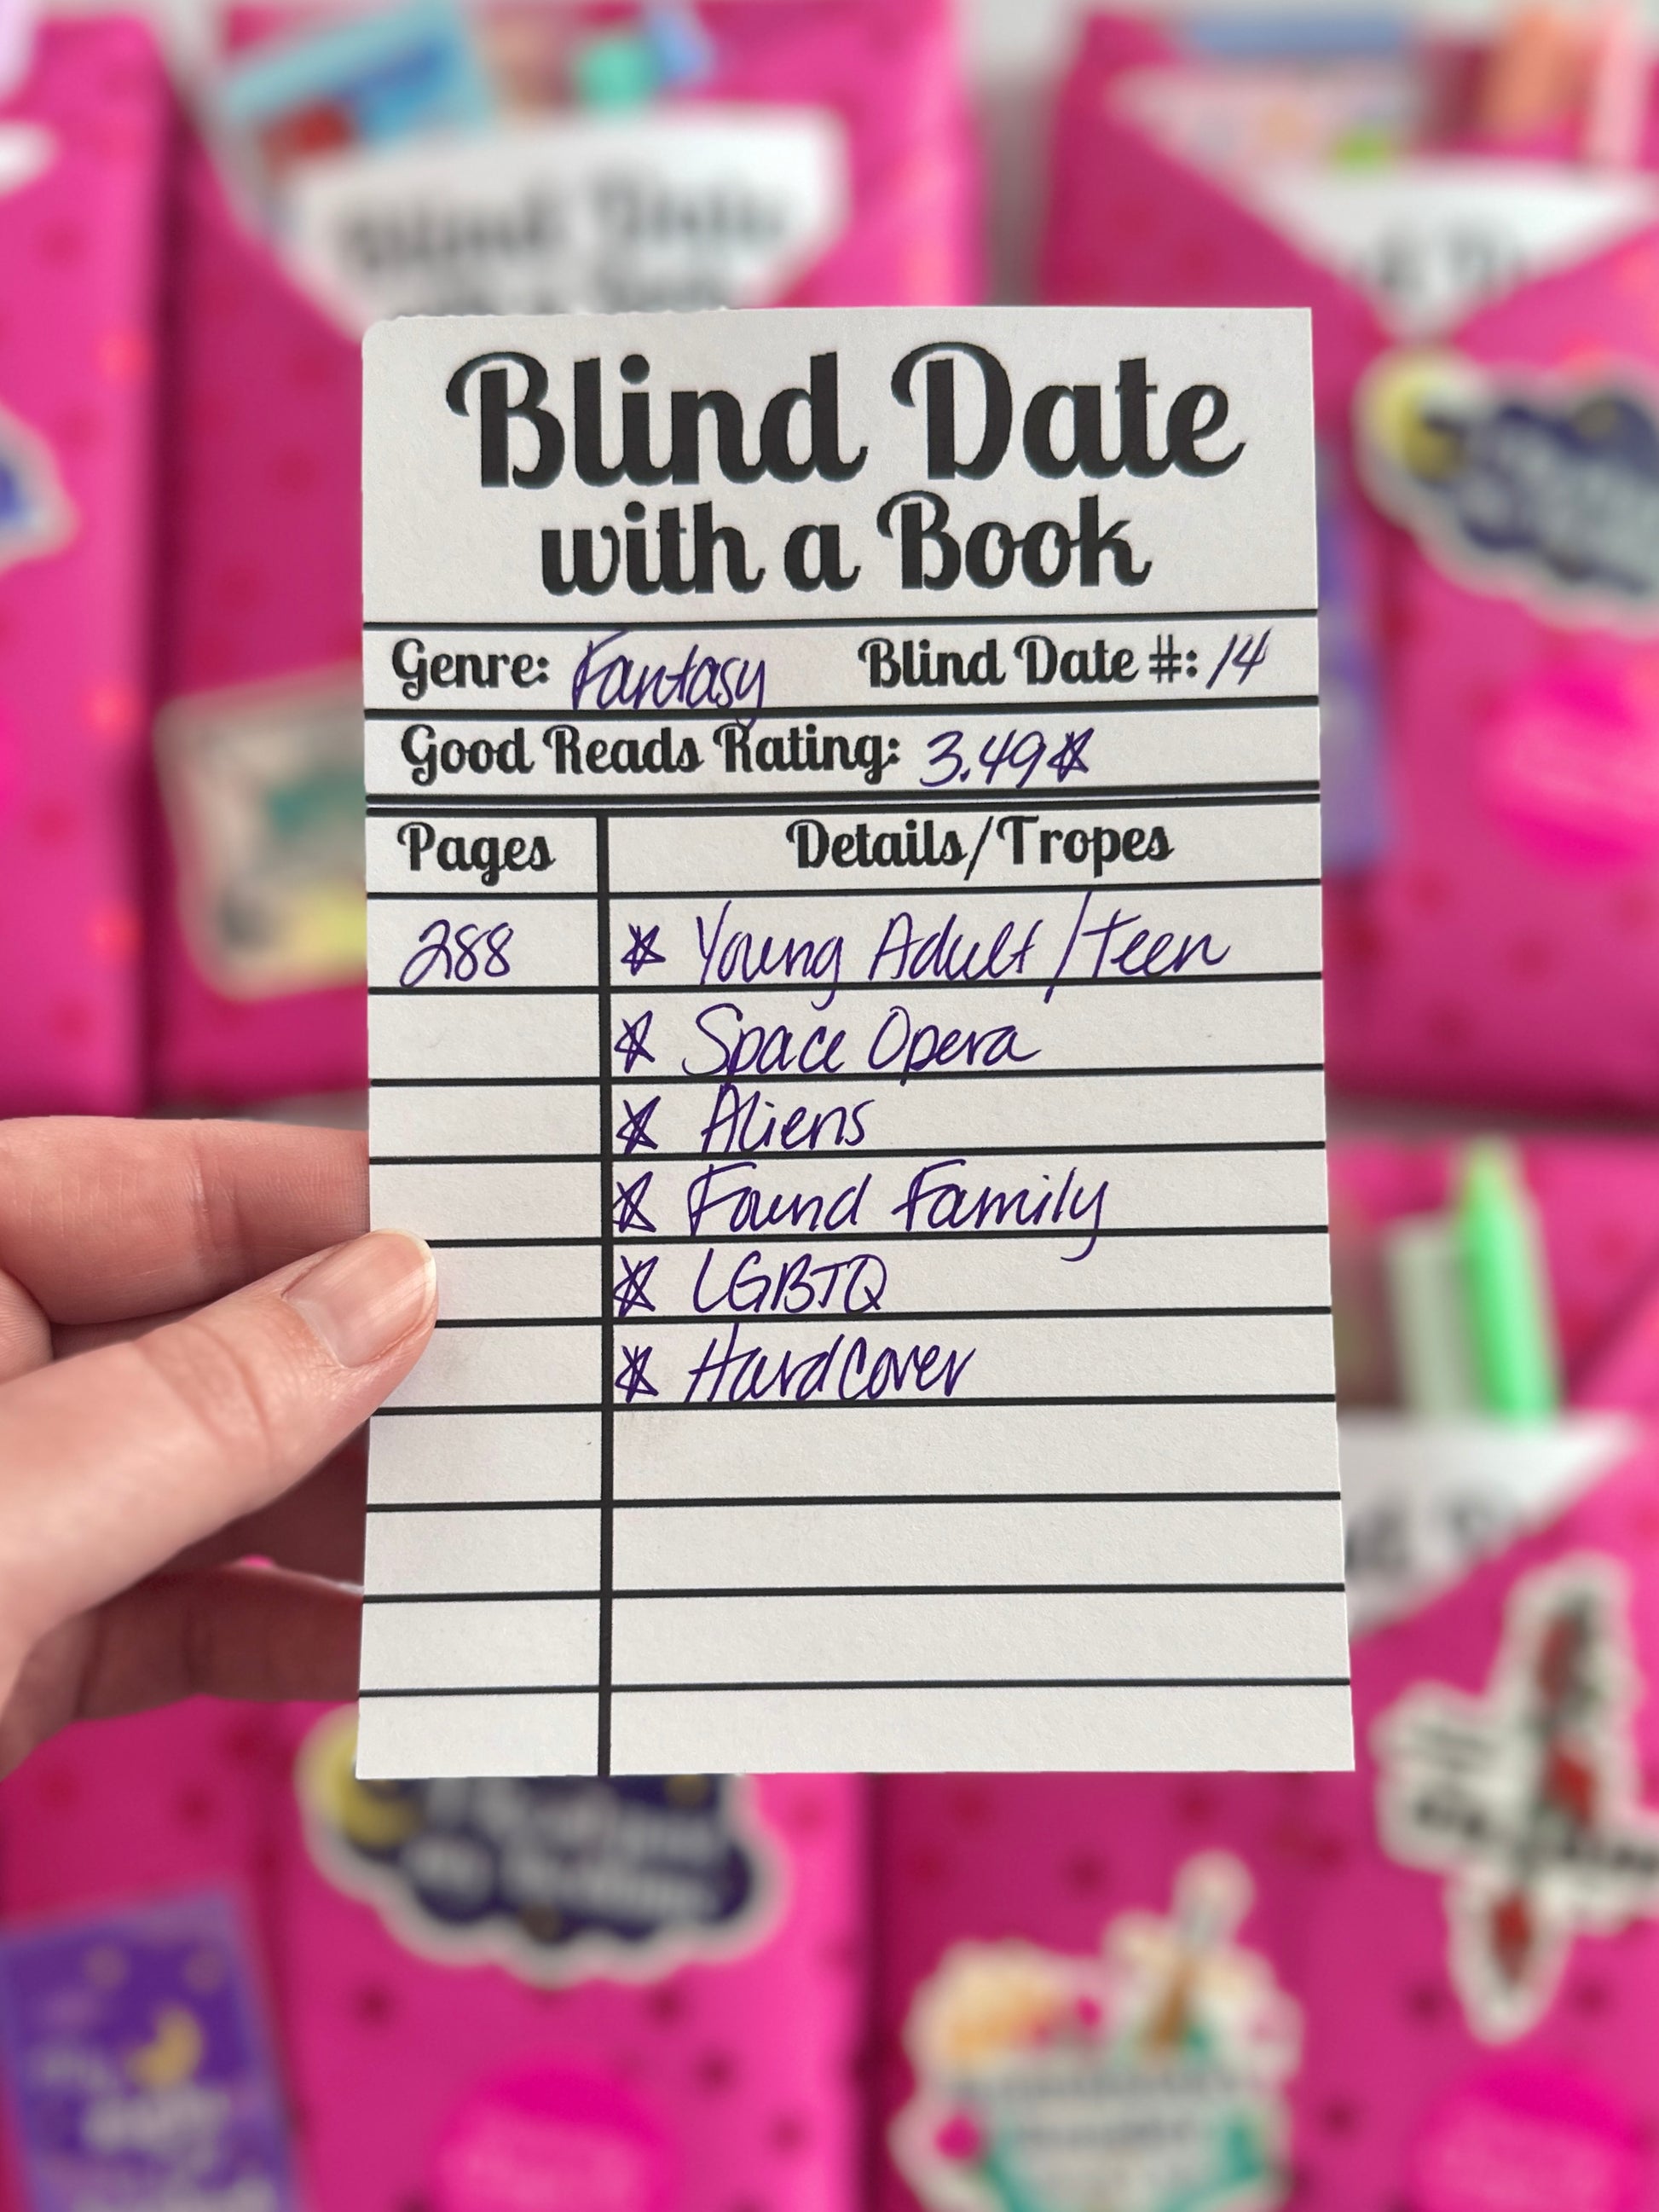 Blind Date
Blind Date
with a Book
Genre: Fantasy Blind Date #: 14
Good Reads Rating: 3.49☆
Pages Details/Tropes
288 ☆ Young Adult/Teen
☆ Space Opera
☆ Aliens
☆ Found Family
☆ LGBTQ
☆ Hardcover